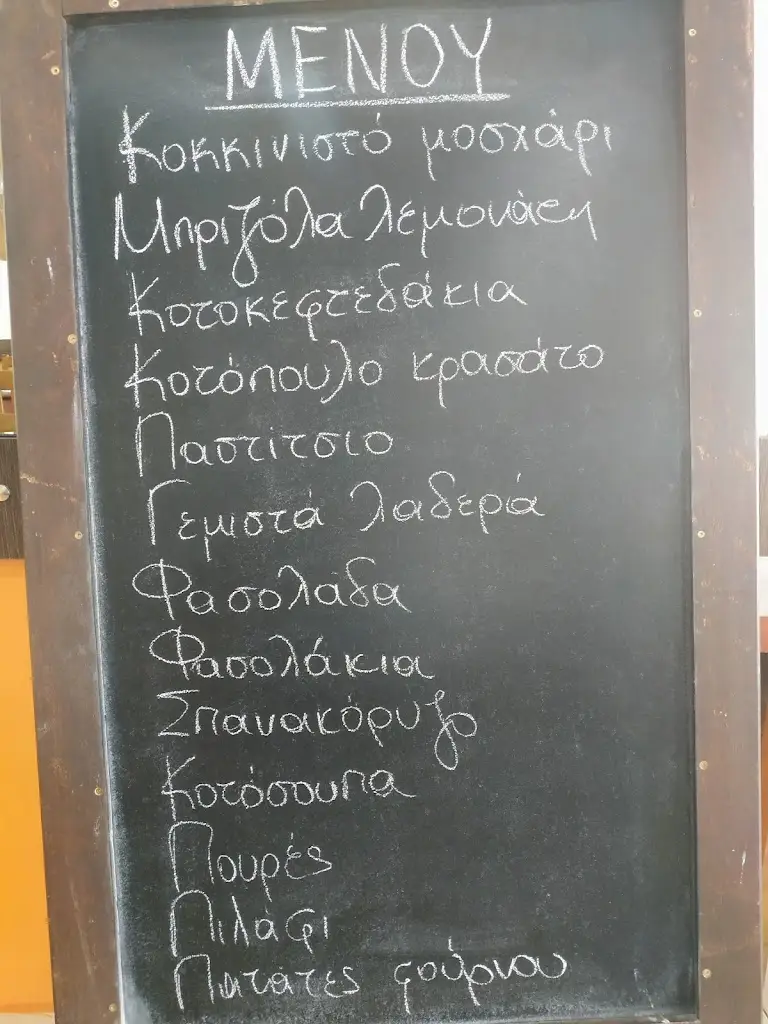 ΜΕΝΟΥ
Κοκκινιστό μοσχάρι
Μπριζόλα λεμονάτη
Κοτοκεφτεδάκια
Κοτόπουλο κρασάτο
Παστίτσιο
Γεμιστά λαδερά
Φασολάδα
Φασολάκια
Σπανακόρυζο
Κοτόσουπα
Πουρές
Πιλάφι
Πατάτες φούρνου